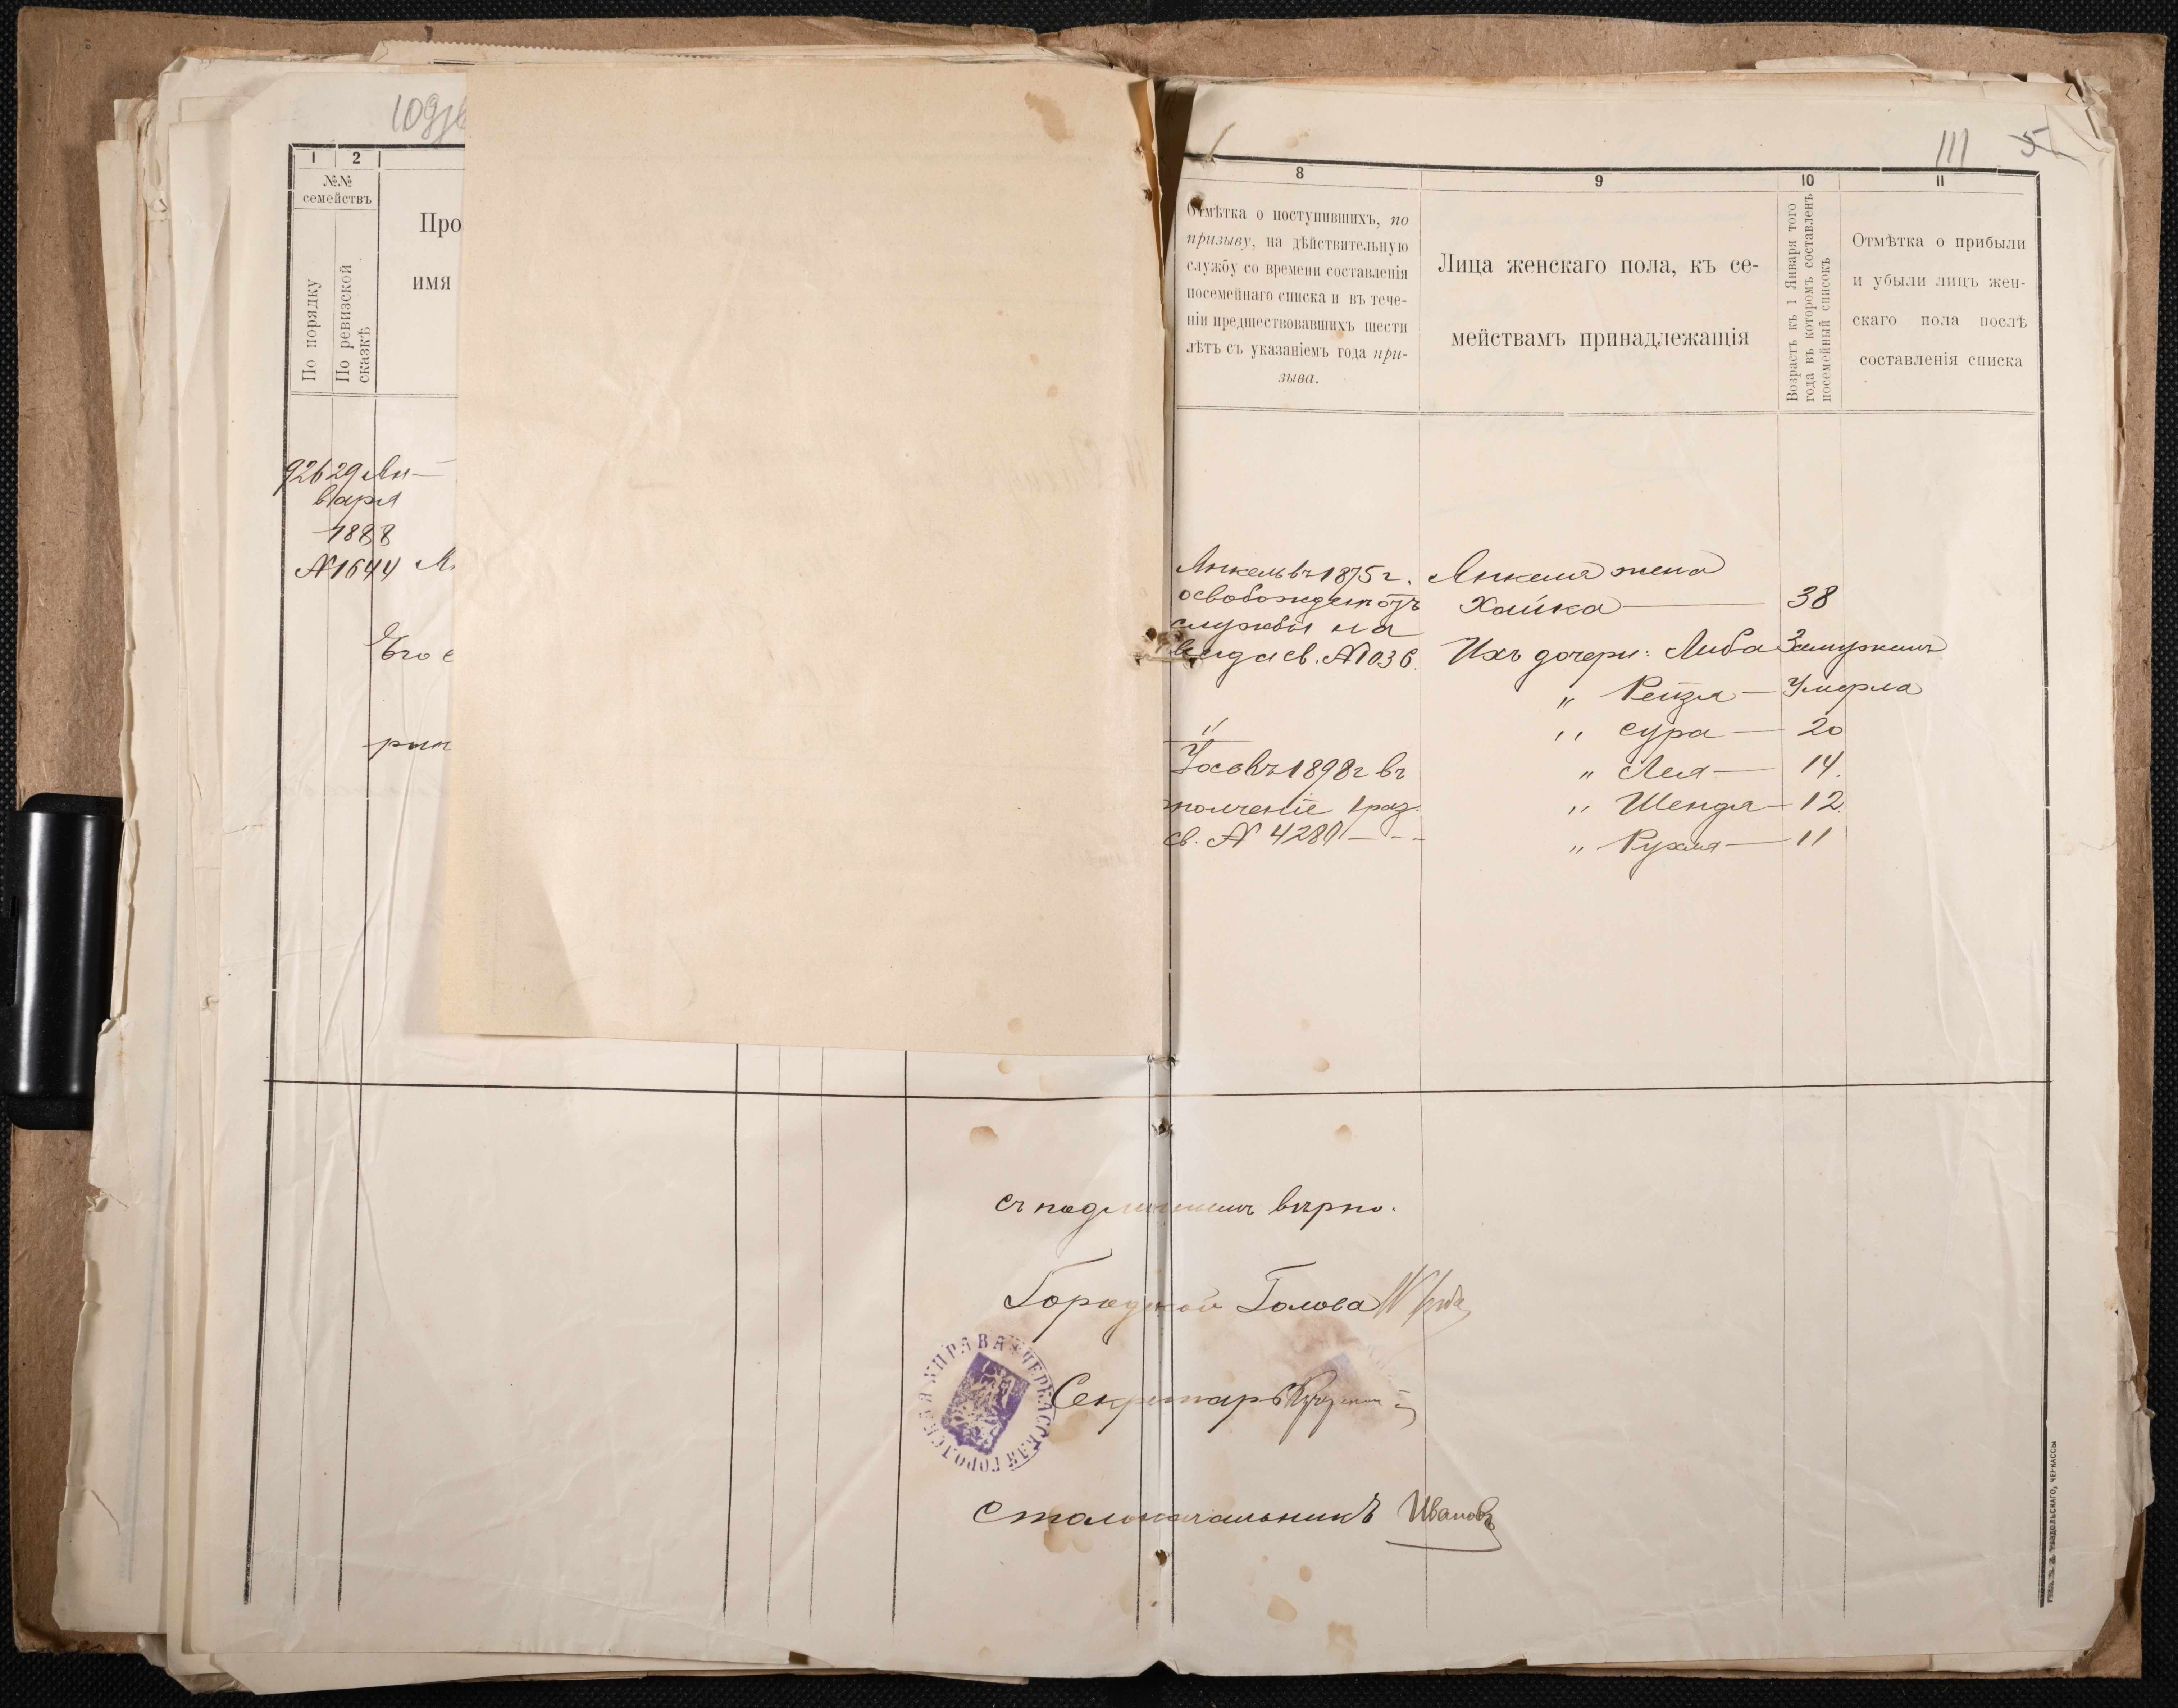 111
1
2
№№
семействъ
По порядку
По ревизской
сказкѣ
Про
имя
926 29 Ян-
варя
1888
№ 1644
Его
8
Отмѣтка о поступившихъ, по
призыву, на дѣйствительную
службу со времени составленія
посемейнаго списка и въ тече-
ніи предшествовавшихъ шести
лѣтъ съ указаніемъ года при-
зыва.
9
Лица женскаго пола, къ се-
мействамъ принадлежащія
10
Возрастъ къ 1 Января того
года въ которомъ составленъ
посемейный списокъ
11
Отмѣтка о прибыли
и убыли лицъ жен-
скаго пола послѣ
составленія списка
Янкель въ 1875 г.
освобожденъ отъ
службы на
всегда св. № 1036.
"
въ 1898 г въ
ополченіе 1 раз.
св. № 4280 - - -
Янкеля жена
Хайка — 38
Ихъ дочери: Либа Замужемъ
" Рейзя — Умерла
" Сура — 20
" Лея — 14.
" Шендя — 12.
" Рухля — 11
Съ подлиннымъ вѣрно.
Городской Голова
Секретарь
Столоначальникъ Ивановъ
ЧЕРКАССКАЯ ГОРОДСКАЯ УПРАВА